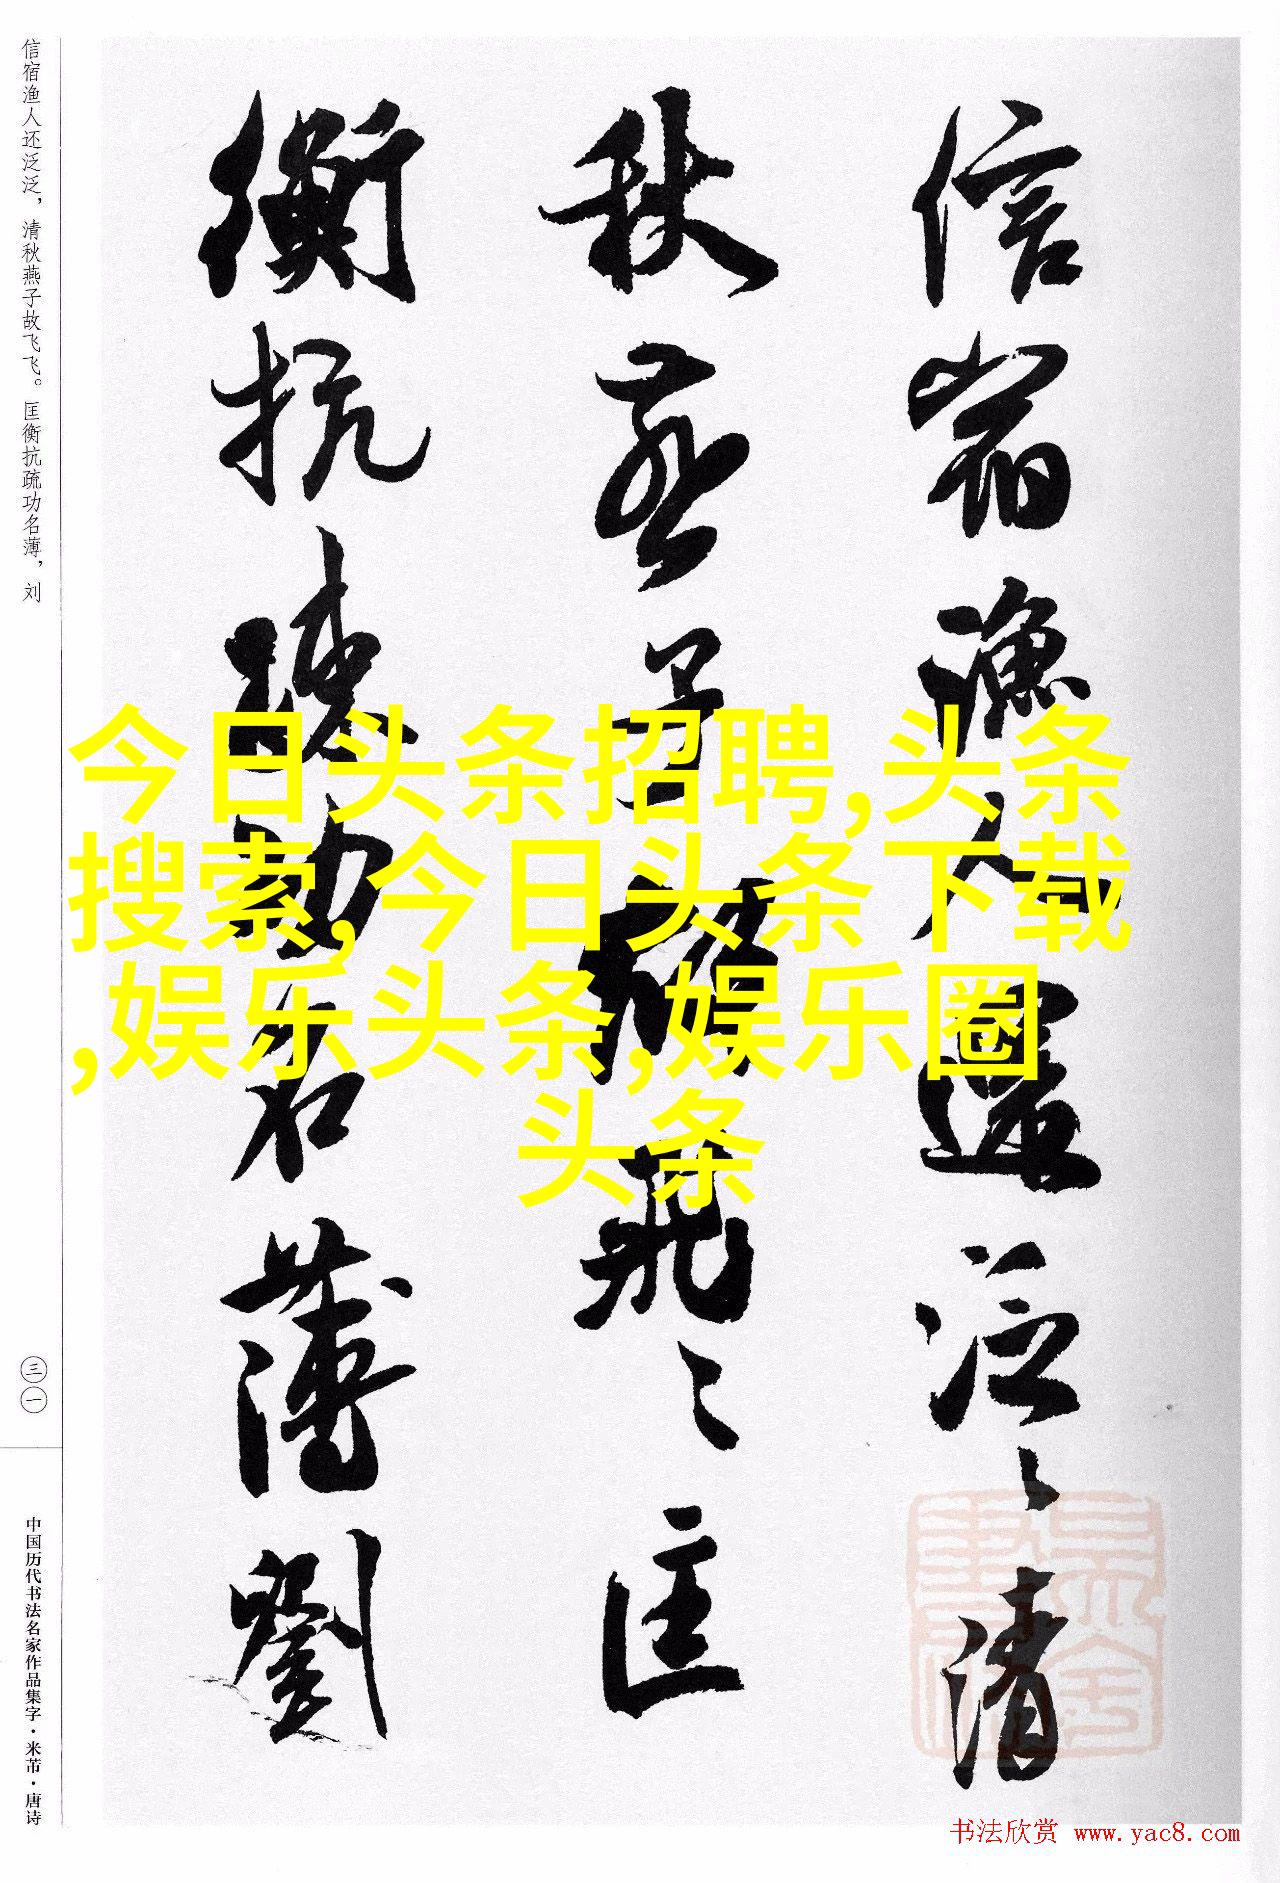 信宿渔人还泛泛，清秋燕子故飞飞。匡衡抗疏功名薄，刘
信宿漁人還泛〻清
秋燕子故飛〻匡
衡抗疏功名薄劉
今日头条招聘,头条
搜索,今日头条下载
,娱乐头条,娱乐圈
头条
三一
中国历代书法名家作品集字·米芾·唐诗
书法欣赏 www.yac8.com